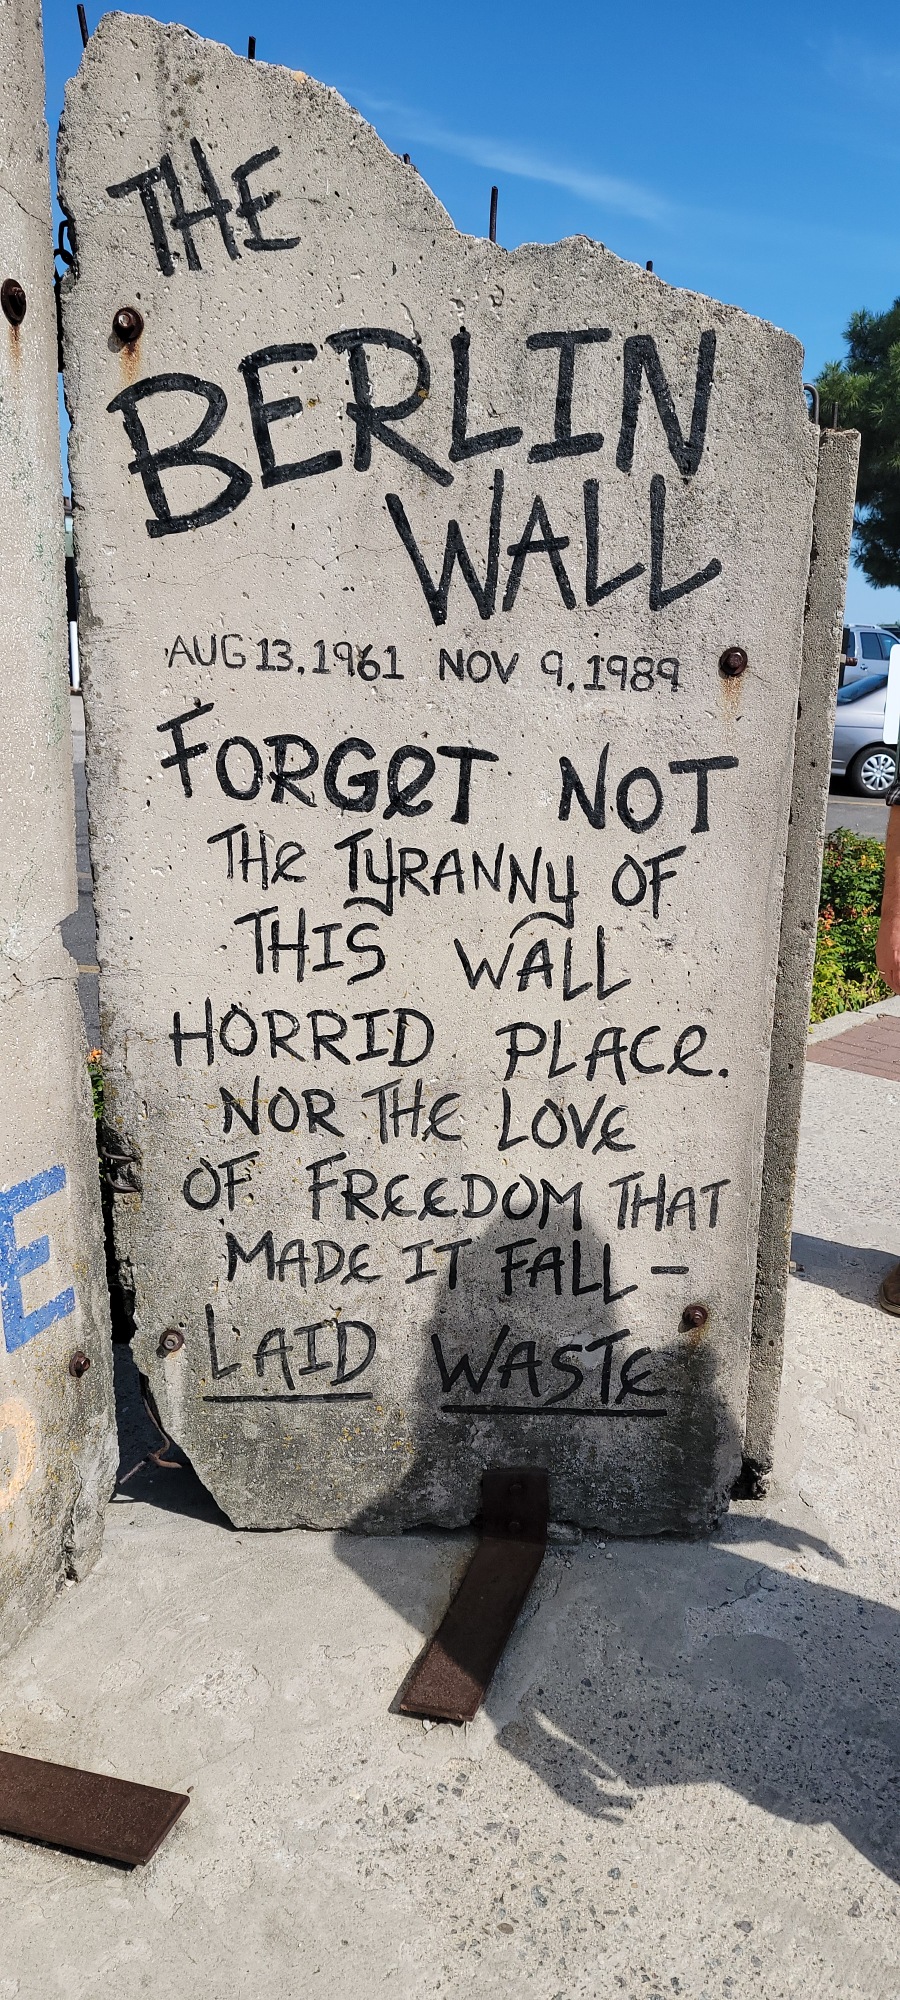 THE
BERLIN
WALL
AUG 13, 1961 NOV 9, 1989
FORGeT NOT
THe TyRANNy OF
THIS WALL
HORRID PLACe.
NOR THE LOVE
OF FREEDOM THAT
MADE IT FALL-
LAID WASTE
E